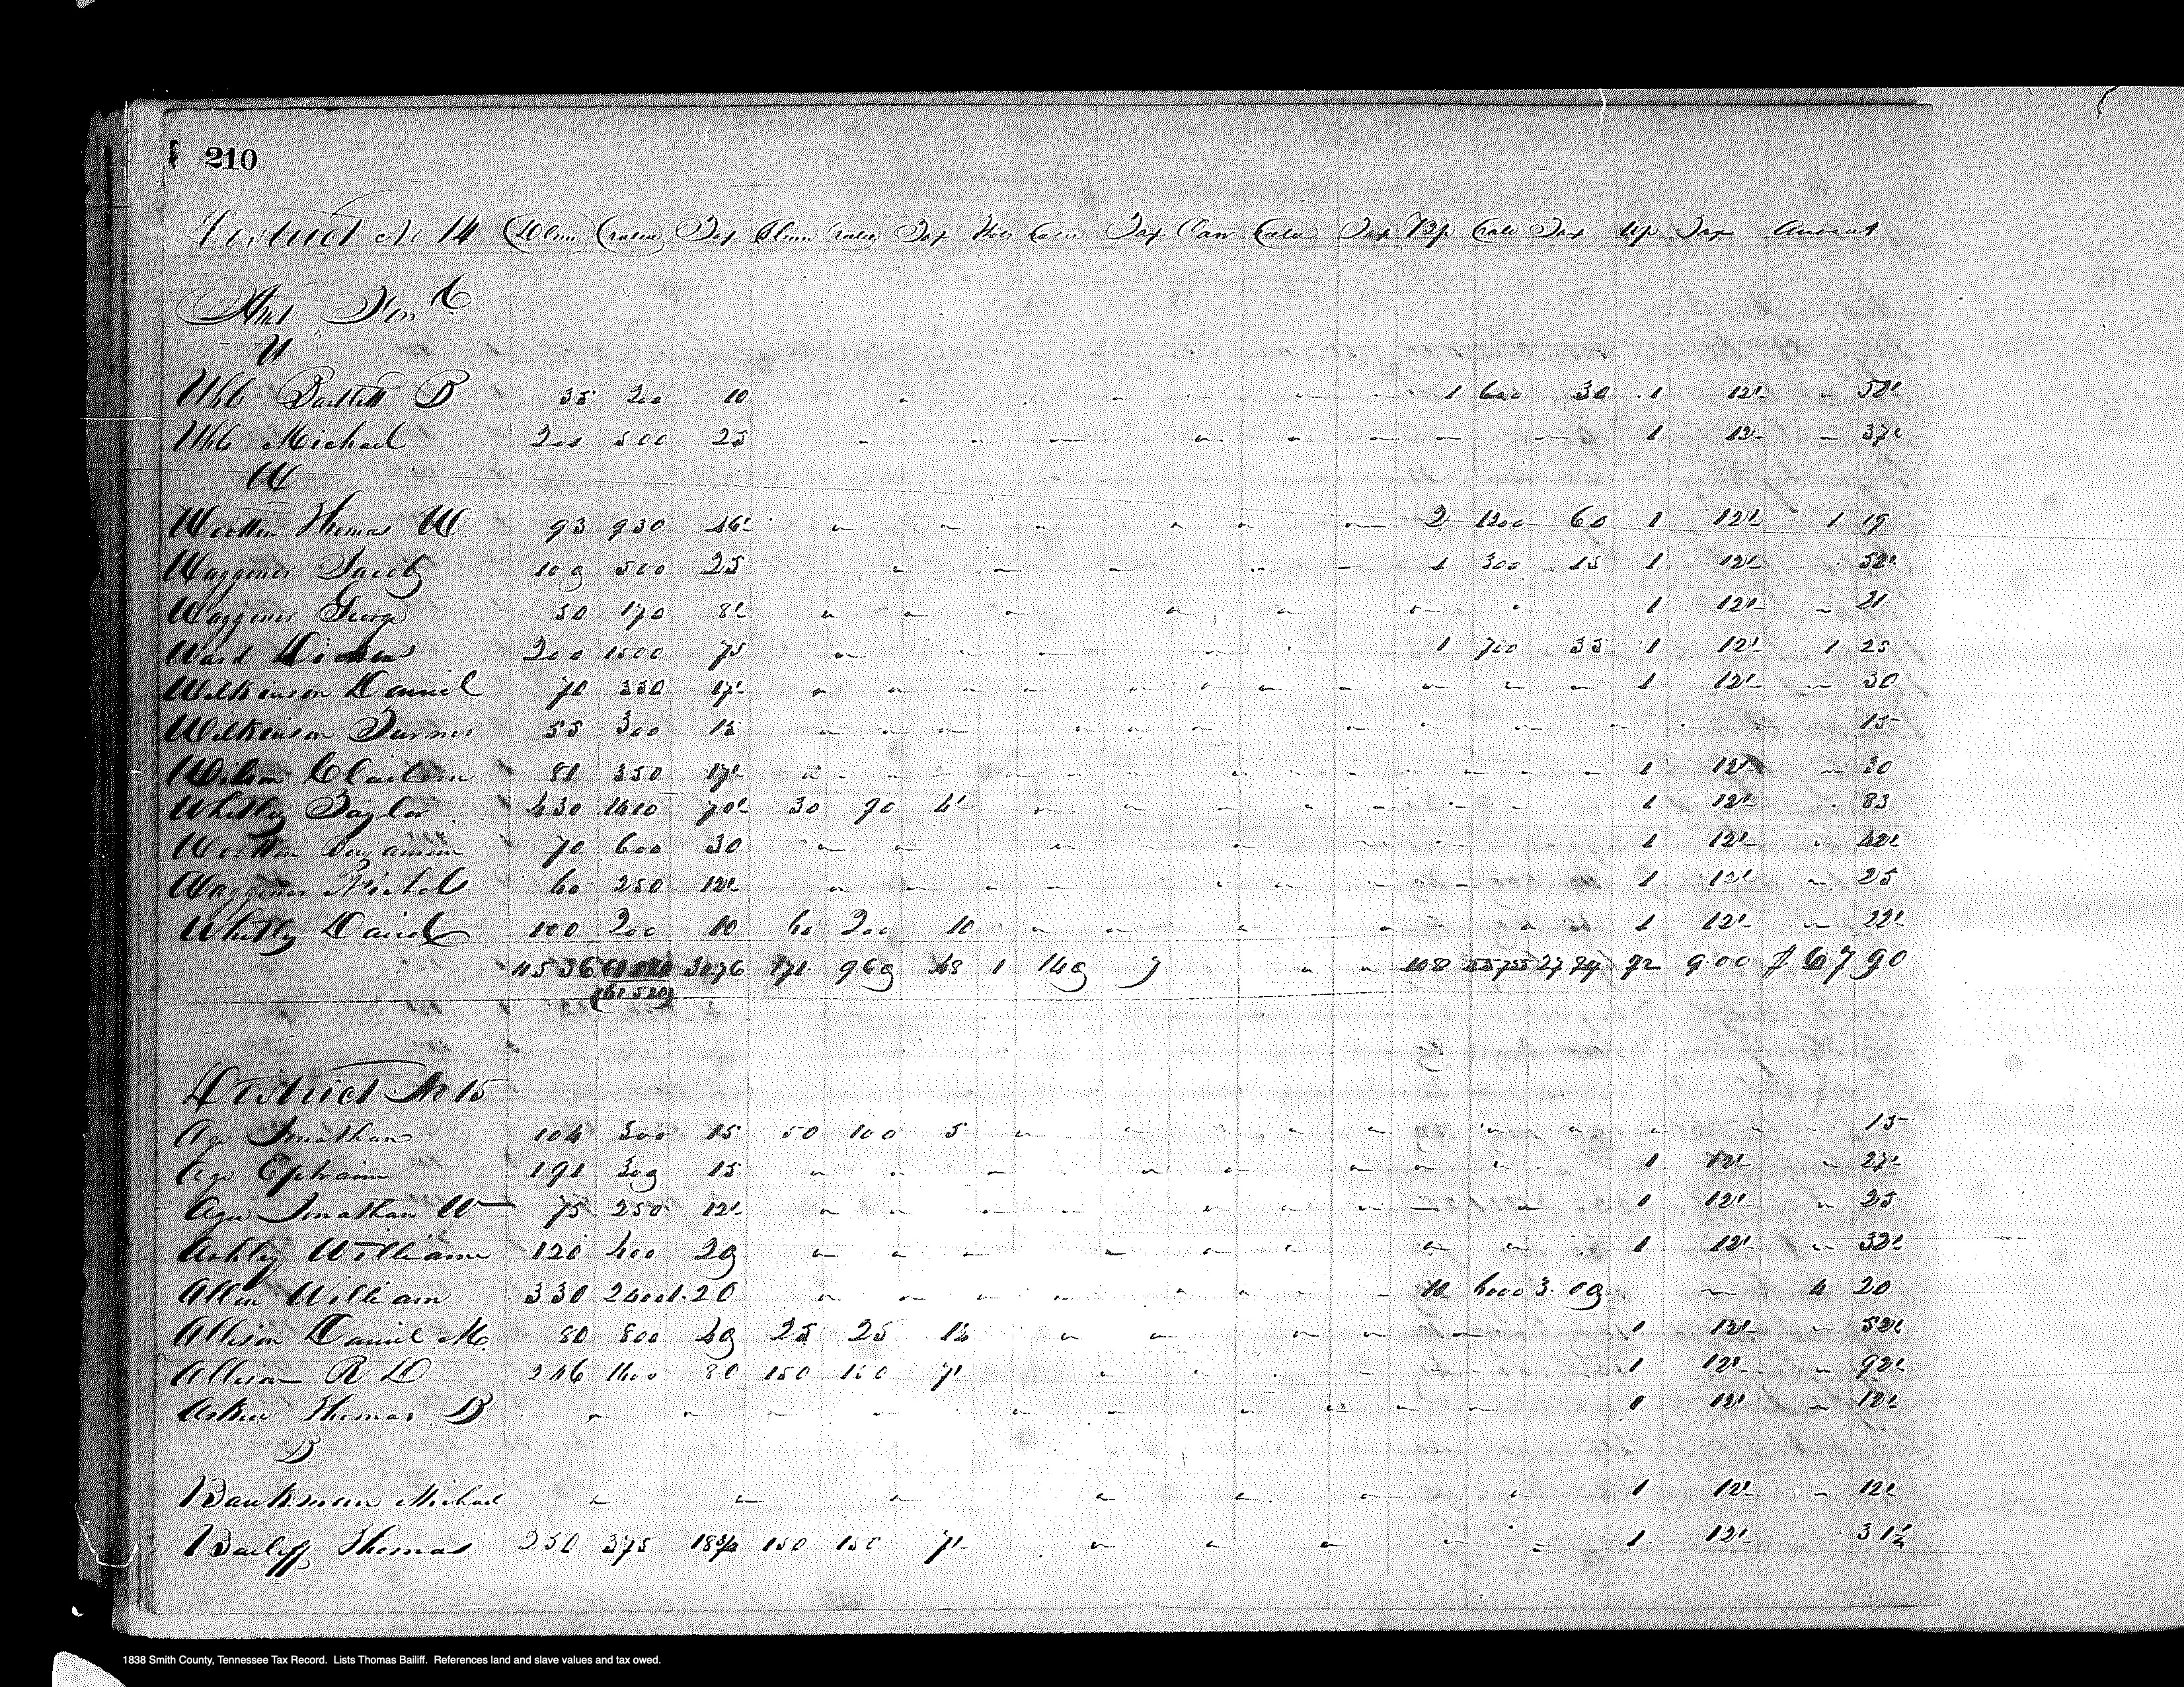 210
District No 14 Value Tax Value Tax Value Tax Tax Tax Wp Tax Amount
U
Uhls Bartlett B 35 200 10 1 600 30 1 12½ 52½
Uhls Michael 200 500 25 1 12½ 37½
W
Wootten Thomas W. 93 930 46½ 2 1200 60 1 12½ 1 19
Waggoner Jacob 100 500 25 1 300 15 1 12½ 52½
Waggoner George 50 170 8½ 1 12½ 21
Ward 200 1500 75 1 700 35 1 12½ 1 25
Wilkinson Daniel 70 350 17½ 1 12½ 30
Wilkinson Turner 55 300 15 15
Wilson 81 350 17½ 1 12½ 30
Whitley Taylor 430 1410 70½ 30 90 4½ 1 12½ 83
Wootten Benjamin 70 600 30 1 12½ 42½
Waggoner Nichols 60 250 12½ 1 12½ 25
Whitley David 100 200 10 60 200 10 1 12½ 22½
11536 3076 171 960 48 1 140 7 108 55755 27 92 9.00 $ 67 90
(61520)
District No 15
Age Jonathan 104 300 15 50 100 5 15
Age Ephraim 191 300 15 1 12½ 27½
Agee Jonathan W 75 250 12½ 1 12½ 25
Ashley William 120 400 20 1 12½ 32½
Allen William 330 2400 1.20 10 6000 3.00 4 20
Allison Daniel M. 80 800 40 25 25 1¼ 1 12½ 52½
Allison R D 246 1600 80 150 150 7½ 1 12½ 92½
Askew Thomas B 1 12½ 12½
B
Baukman Michael 1 12½ 12½
Bailiff Thomas 250 375 18¾ 150 150 7½ 1 12½ 31¼
1838 Smith County, Tennessee Tax Record. Lists Thomas Bailiff. References land and slave values and tax owed.